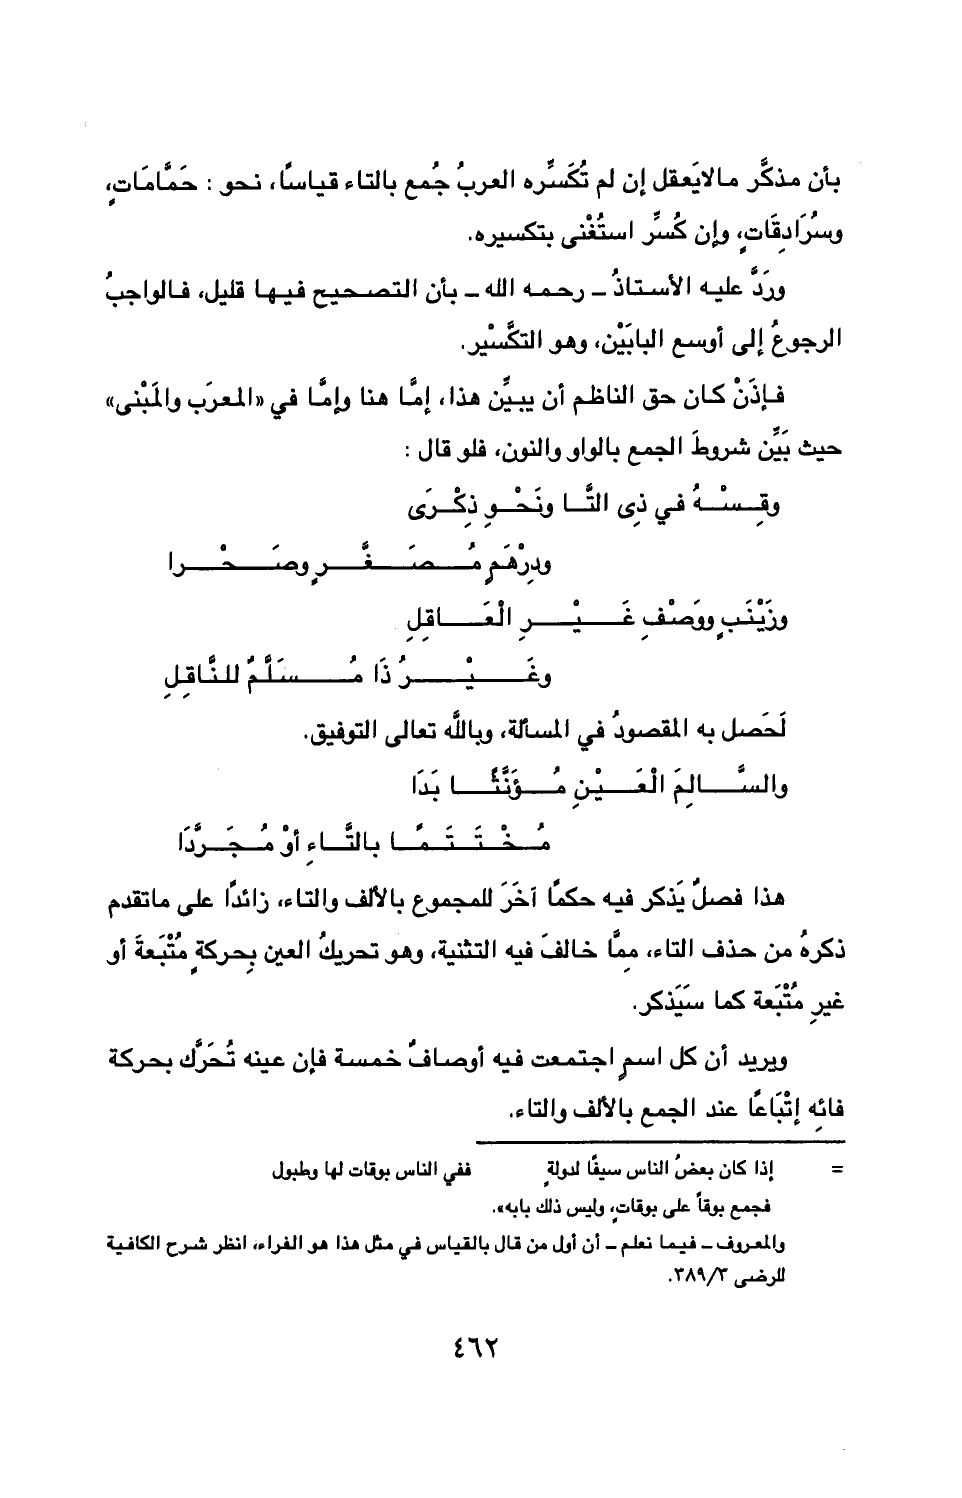 بأن مذكَّر مالايَعقل إن لم تُكَسِّره العربُ جُمع بالتاء قياسًا، نحو : حَمَّامَاتٍ،
وسُرَادِقَاتٍ، وإن كُسِّر استُغْنى بتكسيره.
ورَدَّ عليه الأستاذُ ـ رحمه الله ـ بأن التصحيح فيها قليل، فالواجبُ
الرجوعُ إلى أوسع البابَيْن، وهو التكْسِير.
فإذَنْ كان حق الناظم أن يبيِّن هذا، إمَّا هنا وإمَّا في «المعرَب والمَبْنى»
حيث بَيَّن شروطَ الجمع بالواو والنون، فلو قال :
وقِسْهُ في ذِى التَّا ونَحْوِ ذِكْرَى
ودِرْهَمٍ مُصَغَّرٍ وصَحْرا
وزَيْنَبٍ ووَصْفِ غَيْرِ الْعَاقِلِ
وغَيْرُ ذَا مُسَلَّمٌ للنَّاقِلِ
لَحَصل به المقصودُ في المسألة، وبالله تعالى التوفيق.
والسَّالِمَ الْعَيْنِ مُؤَنَّثًا بَدَا
مُخْتَتَمًا بالتَّاءِ أوْ مُجَرَّدَا
هذا فصلٌ يَذكر فيه حكمًا آخَرَ للمجموع بالألف والتاء، زائدًا على ماتقدم
ذكرهُ من حذف التاء، مِمَّا خالفَ فيه التثنية، وهو تحريكُ العين بِحركةٍ مُتْبَعةَ أو
غيرِ مُتْبَعة كما سَيَذكر.
ويريد أن كل اسمٍ اجتمعت فيه أوصافٌ خمسة فإن عينه تُحَرَّك بحركة
فائِه إتْبَاعًا عند الجمع بالألف والتاء.
= إذا كان بعضُ الناس سيفًا لدولةٍ ففي الناس بوقات لها وطبول
فجمع بوقاً على بوقاتٍ، وليس ذلك بابه».
والمعروف ـ فيما نعلم ـ أن أول من قال بالقياس في مثل هذا هو الفراء، انظر شرح الكافية
للرضى ٣٨٩/٣.
٤٦٢